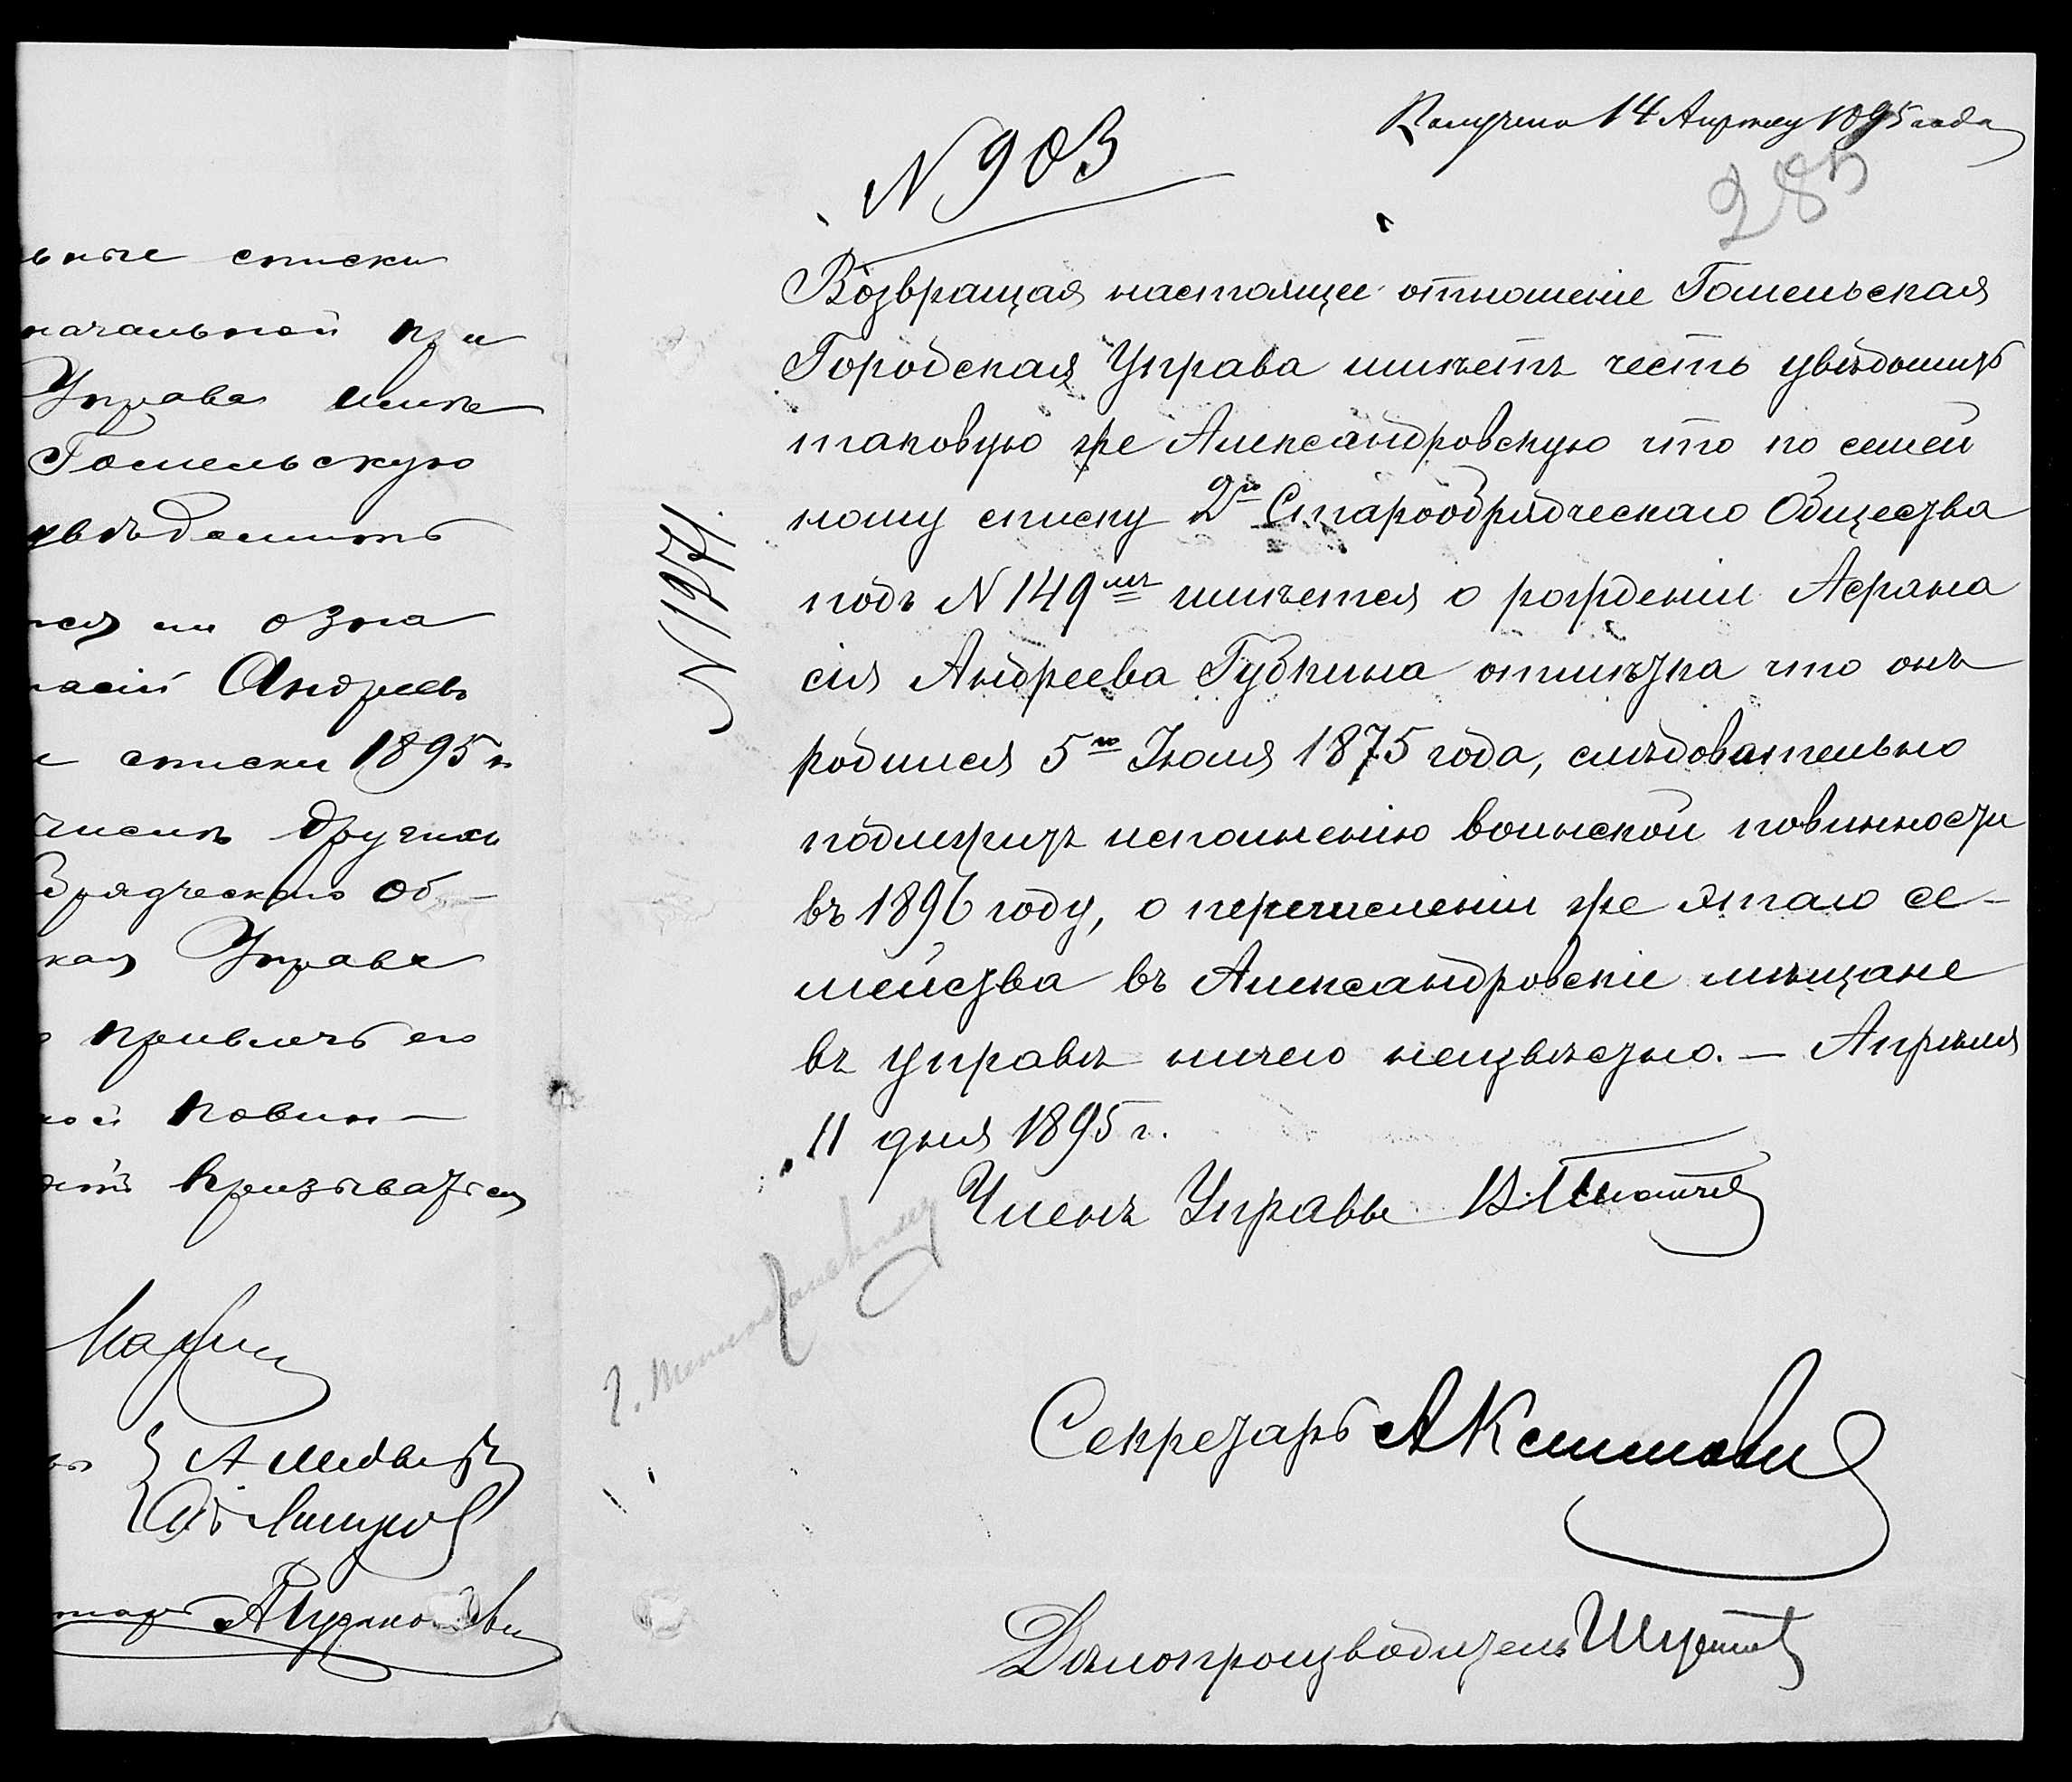 ьные списки
начальной при
Управа имѣ
Гомельскую
увѣдомить
ся ли озна
насій Андреевъ
списки 1895 г
числѣ другихъ
брядческаго Об-
кая Управа
привлечь его
ной повин-
призываться
А Медвед
Получено 14 Апрѣля 1895 года
N 903
285
Возвращая настоящее отношеніе Гомельская
Городская Управа имѣетъ честь увѣдомить
таковую же Александровскую что по семей
ному списку 2го Старообрядческаго Общества
подъ N 149мъ имѣется о рожденіи Афана
сія Андреева Губкина отмѣтка что онъ
родился 5го Іюля 1875 года, слѣдовательно
подлежитъ исполненію воинской повинности
въ 1896 году, о перечисленіи же этаго се-
мейства въ Александровскіе мѣщане
въ управѣ ничего неизвѣстно. — Апрѣля
11 дня 1895 г.
N 1274.
Членъ Управы
Секретарь
Дѣлопроизводитель